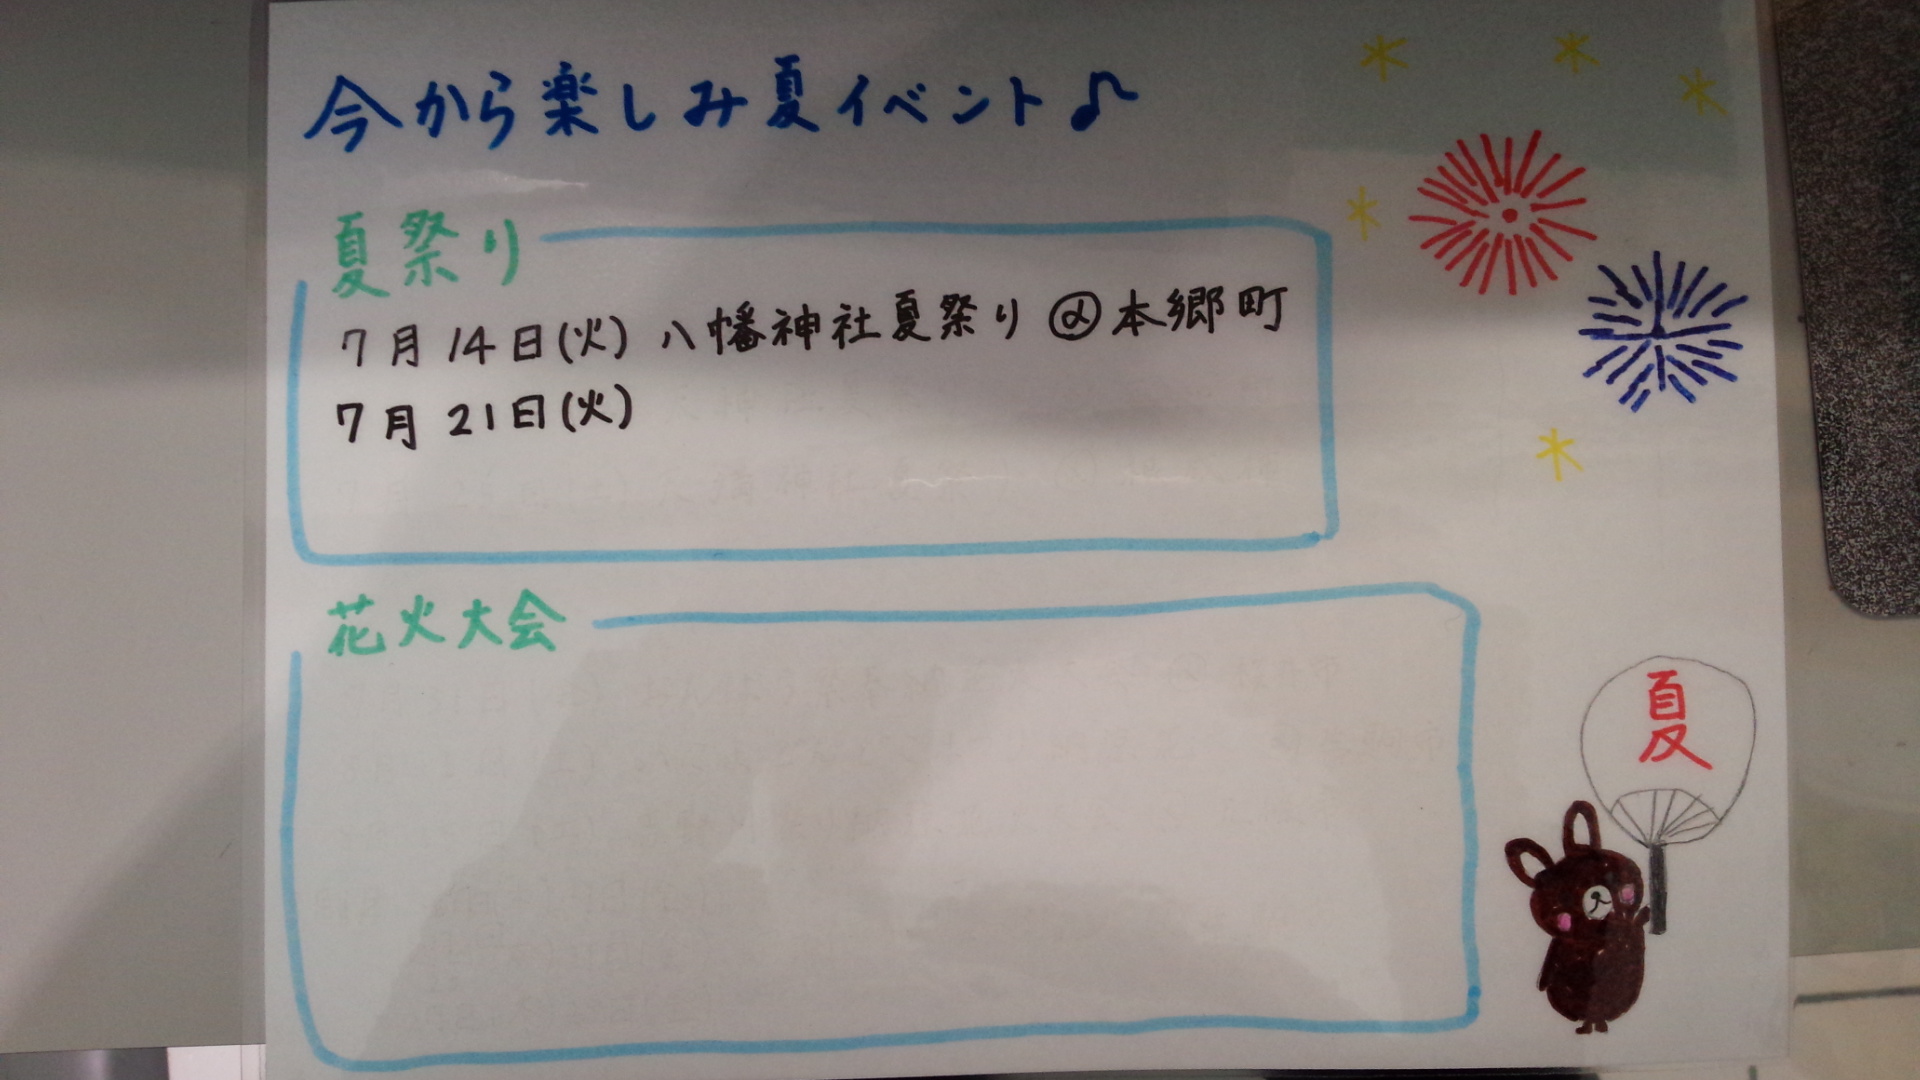 今から楽しみ夏イベント♪
夏祭り
7月14日(火) 八幡神社夏祭り @本郷町
7月21日(火)
花火大会
夏